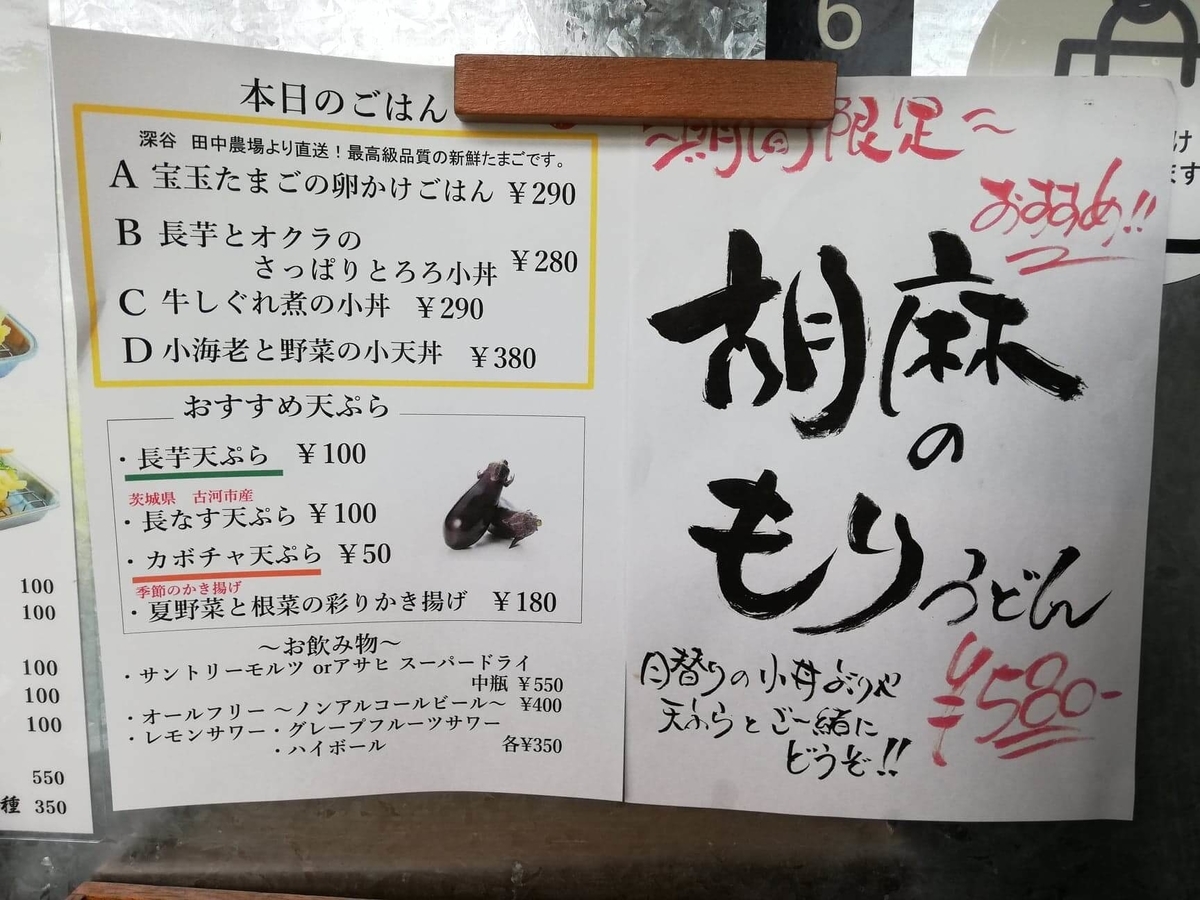 本日のごはん
深谷 田中農場より直送！最高級品質の新鮮たまごです。
A 宝玉たまごの卵かけごはん ¥290
B 長芋とオクラの
さっぱりとろろ小丼 ¥280
C 牛しぐれ煮の小丼 ¥290
D 小海老と野菜の小天丼 ¥380
おすすめ天ぷら
・長芋天ぷら ¥100
茨城県 古河市産
・長なす天ぷら ¥100
・カボチャ天ぷら ¥50
季節のかき揚げ
・夏野菜と根菜の彩りかき揚げ ¥180
～お飲み物～
・サントリーモルツ orアサヒ スーパードライ
中瓶 ¥550
・オールフリー ～ノンアルコールビール～ ¥400
・レモンサワー・グレープフルーツサワー
・ハイボール 各¥350
～期間限定～
おすすめ!!
胡麻
の
もりうどん
¥580-
日替りの小丼ぶりや
天ぷらとご一緒に
どうぞ!!
6
100
100
100
100
100
550
種 350
け
ます